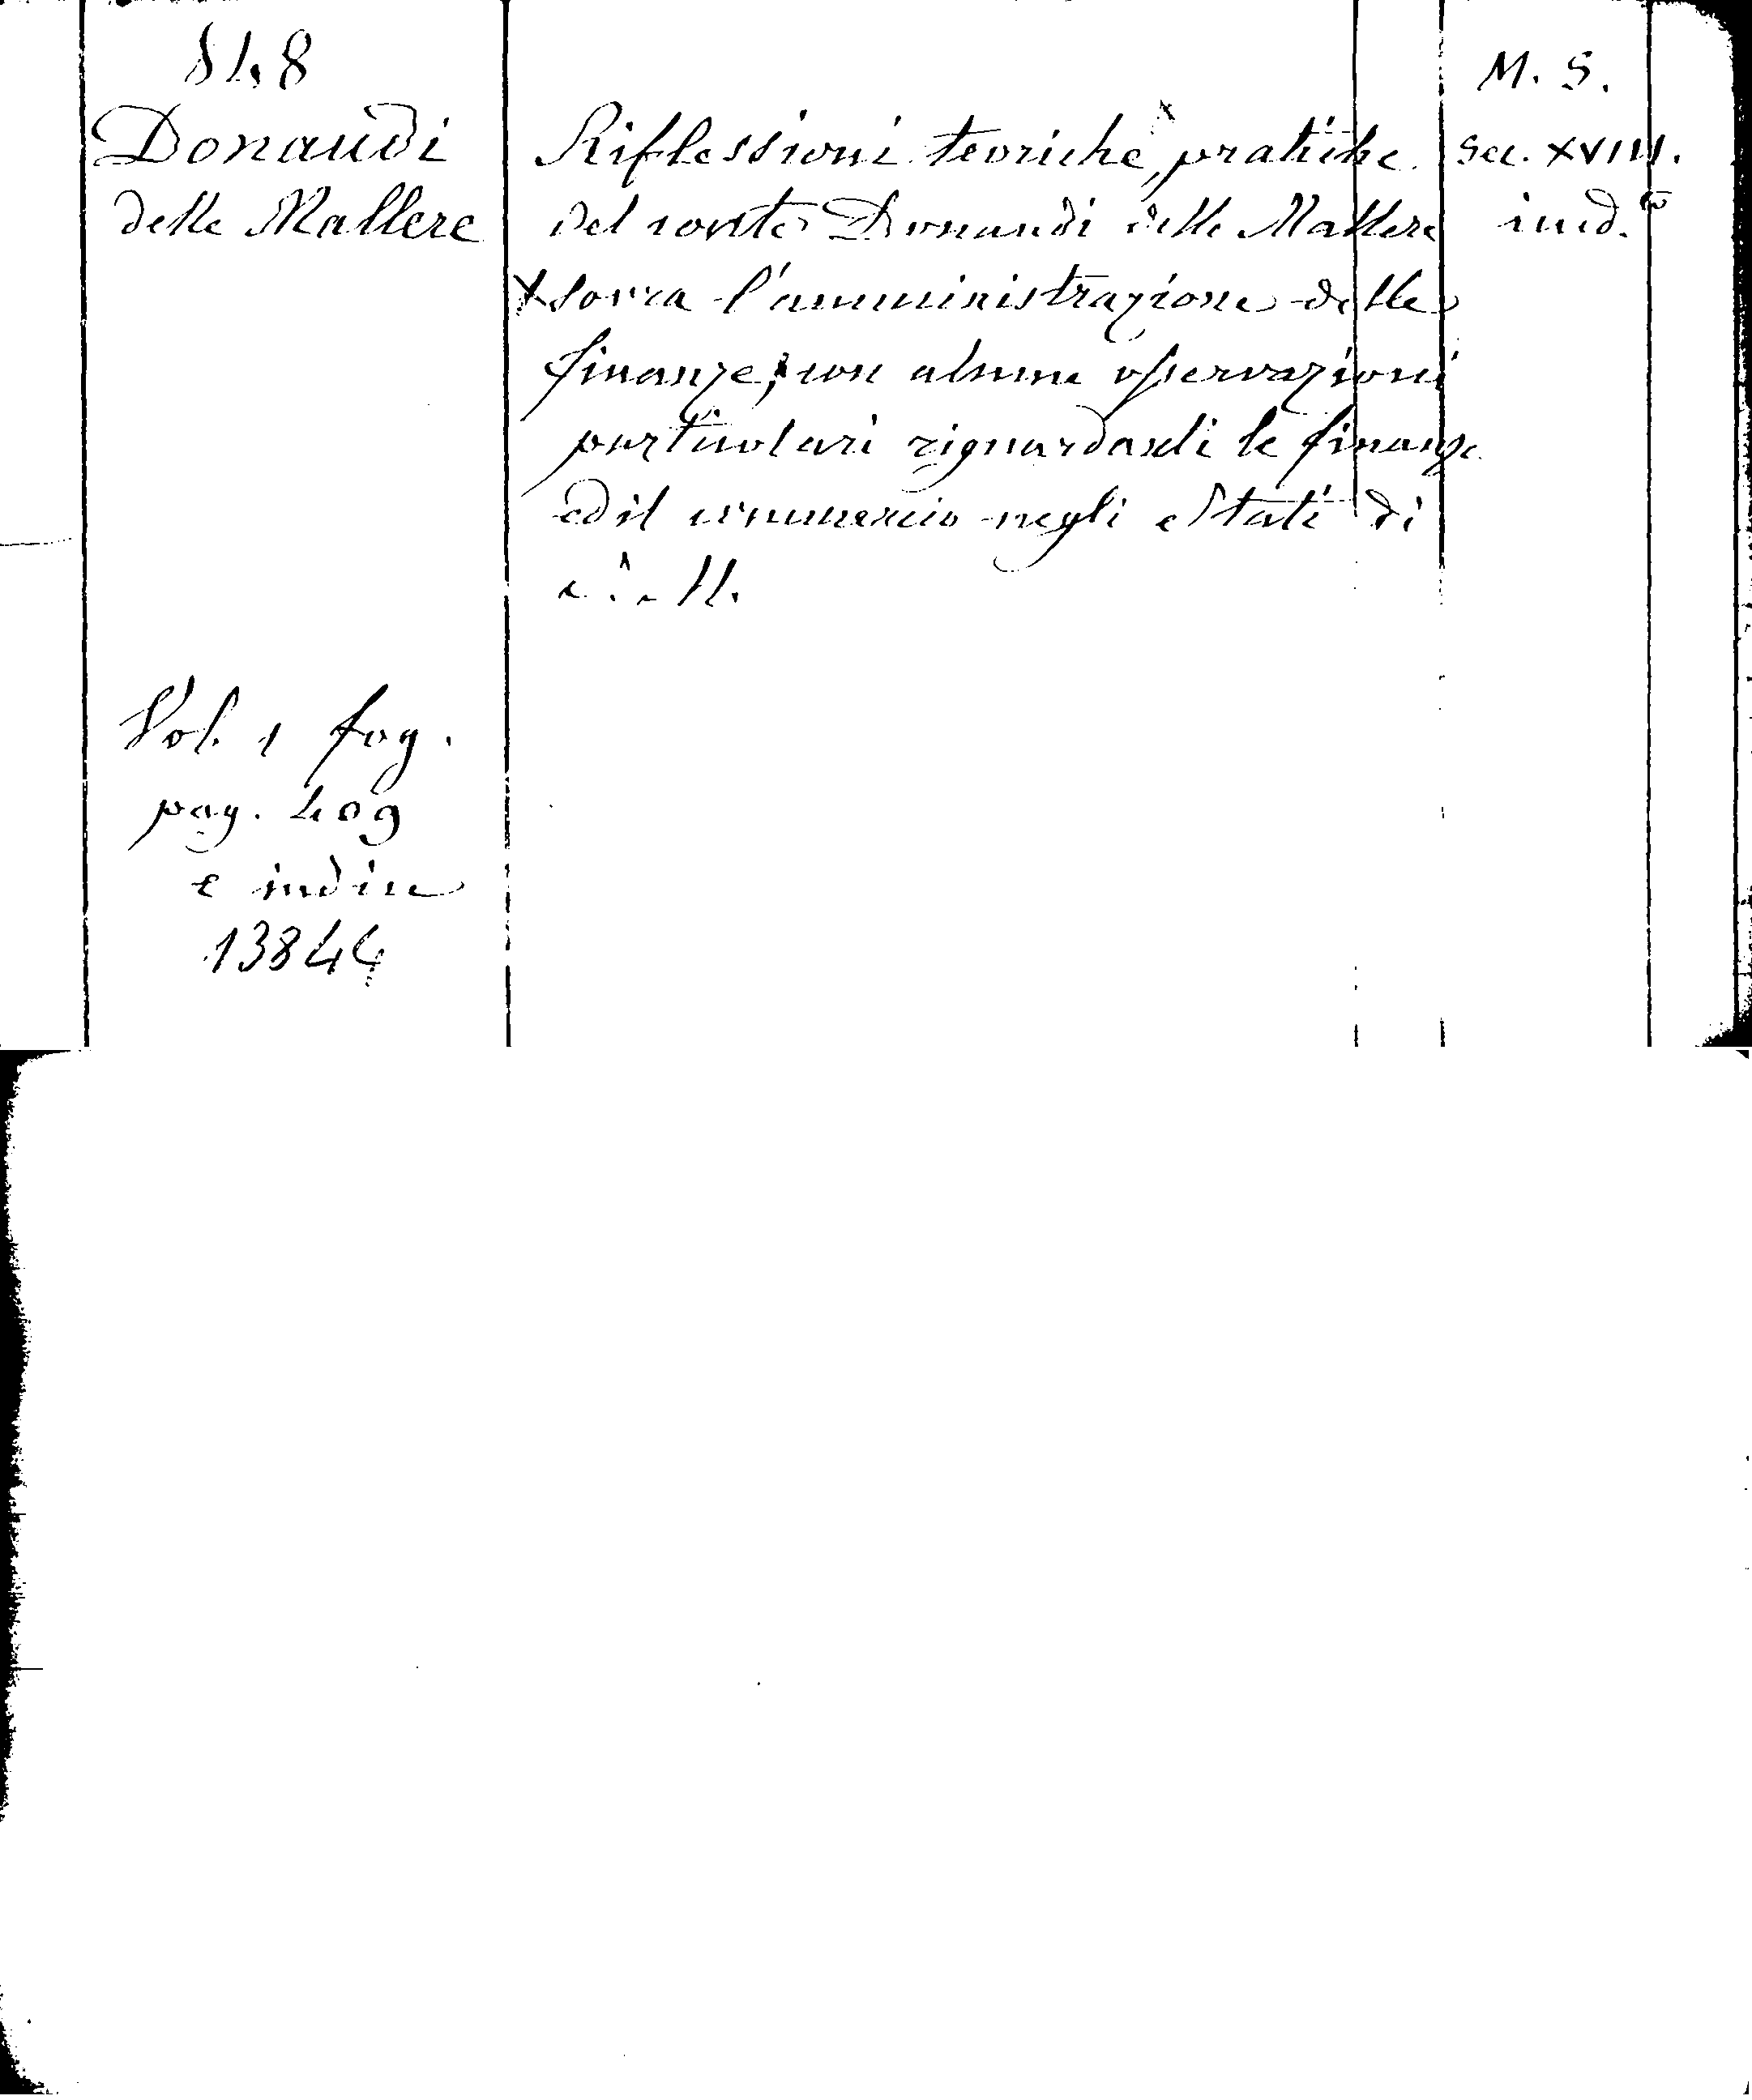 848
Donaudi
delle Mallere
Riflessioni teoriche, pratiche
del conte Donaudi delle Mallere
sovra l'amministrazione delle
finanze, con alcune osservazioni
particolari riguardanti le finanze
ed il commercio negli Stati di
M. S.
sec. XVIII.
ined.to
Vol. 1 fog.
pag. 409
e indice
13844